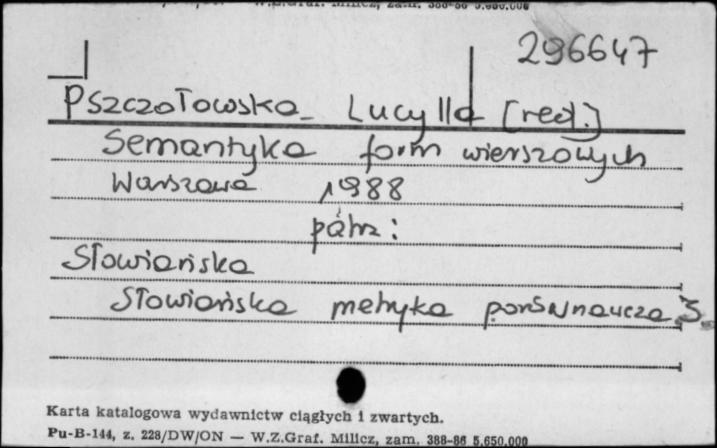 W.Z.Graf. Milicz, zam. 388-86 5.650.000
296647
Pszczołowska Lucylla [red.]
Semantyka form wierszowych
Warszawa 1988
patrz:
Słowiańska
Słowiańska metryka porównawcza 3.
Karta katalogowa wydawnictw ciągłych i zwartych.
Pu-B-144, z. 228/DW/ON — W.Z.Graf. Milicz, zam. 388-86 5.650.000